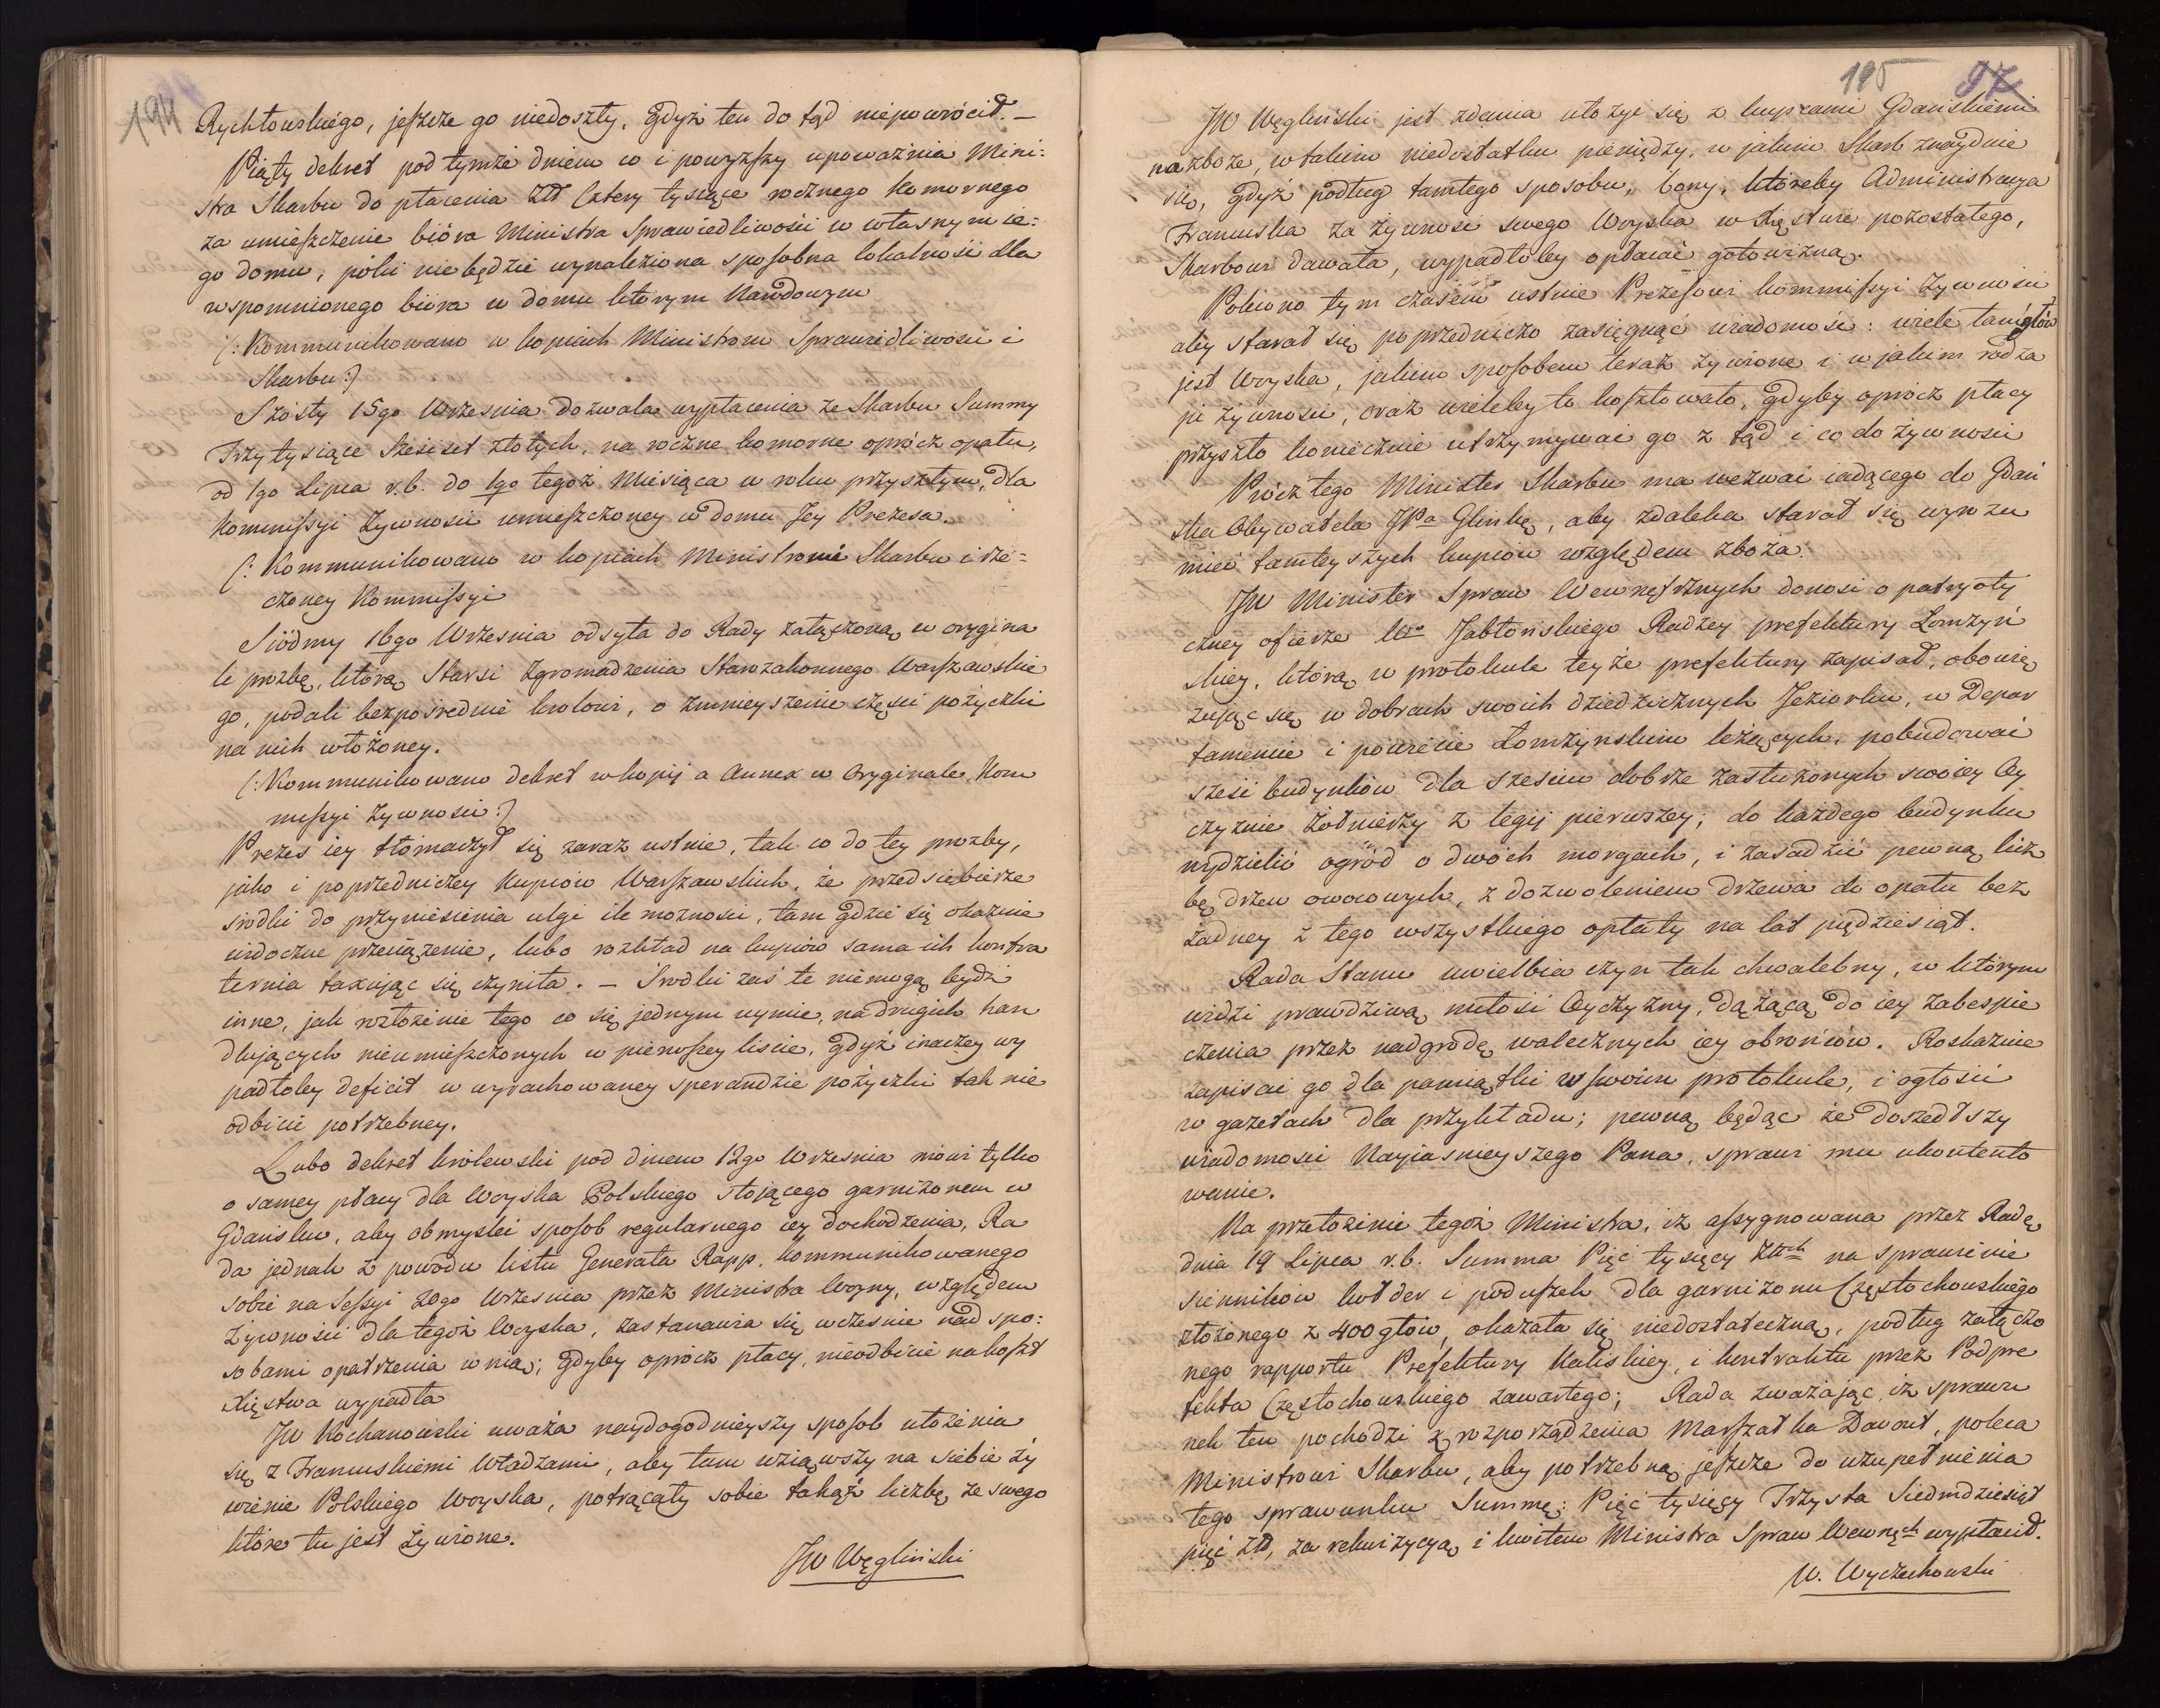 194
Rychłowskiego, jeszcze go niedoszły, gdyż ten do tąd niepowrócił. —
Piąty dekret pod tymże dniem co i powyższy upoważnia Mini:
stra Skarbu do płacenia Złł cztery tysiące rocznego komornego
za umieszczenie bióra Ministra Sprawiedliwości w własnym ie:
go domu, póki nie będzie wynaleziona sposobna lokalność dla
wspomnionego bióra w domu którym Narodowym
(: Kommunikowano w kopiach Ministrom Sprawiedliwości i
Skarbu :)
Szósty 15go Września dozwala wypłacenia ze Skarbu Summy
Trzy tysiące sześćset złotych, na roczne komorne oprócz opału,
od 1go Lipca r.b. do 1go tegoż Miesiąca w roku przyszłym, dla
Kommissyi Żywności umieszczoney w domu Jey Prezesa.
(: Kommunikowano w kopiach Ministrowi Skarbu i rze=
czoney Kommissyi
Siódmy 16go Września odsyła do Rady załączoną w orygina
le prozbę, którą Starsi Zgromadzenia Starozakonnego Warszawskie
go, podali bezpośrednie krolowi, o zmnieyszenie części pożyczki
na nich włożoney.
(: Kommunikowano dekret w kopij a Annex w Oryginale Kom
missyi Żywności :)
Prezes iey tłómaczył się zaraz ustnie, tak co do tey prozby,
jako i poprzedniczey Kupców Warszawskich, że przedsiębierze
srodki do przyniesienia ulgi ile możności, tam gdzie się okaznie
widoczne przeciążenie, lubo rozkład na kupców sama ich konfra
ternia taxując się czyniła. — Srodki zaś te niemogą bydź
inne, jak rozłożenie tego co się jednym uymie, na drugich han
dlujących nieumieszczonych w pierwszey liście, gdyż inaczey wy
padłoby deficit w wyrachowaney sperandzie pożyczki tak nie
odbicie potrzebney.
Lubo dekret królewski pod dniem 12go Września mówi tylko
o samey płacy dla Woyska Polskiego stojącego garnizonem w
Gdańsku, aby obmyślić sposob regularnego iey dochodzenia, Ra
da jednak z powodu listu Generała Rapp, kommunikowanego
sobie na Sessyi 20go Września przez Ministra Woyny, względem
Żywności dla tegoż Woyska, zastanawia się wcześnie nad spo:
sobami opatrzenia w nią; gdyby oprócz płacy, nieodbicie na koszt
Xięstwa wypadła
JW Kochanowski uważa naydogodnieyszy sposob ułożenia
się z Francuskiemi Władzami, aby tam wziąwszy na siebie ży
wienie Polskiego Woyska, potrącały sobie takąż liczbę ze swego
które tu jest żywione.
JW Węgliński
195 97
JW Węgliński jest zdania ułożyć się z kupcami Gdańskiemi
na zboże, w takim niedostatku pieniędzy, w jakim Skarb znayduie
się, gdyż podług tamtego sposobu, bony, któreby Administracya
Francuska za żywność swego Woyska w Xięstwie pozostałego,
Skarbowi dawała, wypadłoby opłacać gotowizną.
Polecono tym czasem ustnie Prezesowi kommissyi Żywności
aby starał się poprzedniczo zasięgnąć wiadomość: wiele tam głów
jest Woyska, jakim sposobem teraz żywione i w jakim rodza
ju żywności, oraz wieleby to kosztowało, gdyby oprócz płacy
przyszło koniecznie utrzymywać go z tąd i co do żywności
Prócz tego Minister Skarbu ma wezwać iadącego do Gdań
ska Obywatela JPa Glinkę, aby zdaleka starał się wyrozu
mieć tamteyszych kupców względem zboża.
JW Minister Spraw Wewnętrznych donosi o patryoty
czney ofierze Wo Jabłońskiego Radzcy prefektury Łomżyń
skiey, którą w protokule teyże prefektury zapisał, obowię
zując się w dobrach swoich dziedzicznych Jeziorku, w Depar
tamencie i powiecie Łomżyńskim leżących, pobudować
sześć budynków dla sześciu dobrze zasłużonych swoiey Oy
czyznie żołnierzy z legij pierwszey; do każdego budynku
wydzielić ogród o dwóch morgach, i zasadzić pewną licz
bę drzew owocowych, z dozwoleniem drzewa do opału bez
żadney z tego wszystkiego opłaty na lat pięćdziesiąt.
Rada Stanu uwielbia czyn tak chwalebny, w którym
widzi prawdziwą miłość Oyczyzny, dążącą do iey zabespie
czenia przez nadgrodę walecznych iey obrońców. Roskazuie
zapisać go dla pamiątki w swoim protokule, i ogłosić
w gazetach dla przykładu; pewną będąc że doszedłszy
wiadomości Nayiaśnieyszego Pana, sprawi mu ukontento
wanie.
Na przełożenie tegoż Ministra, iż assygnowana przez Radę
dnia 19 Lipca r.b. Summa Pięć tysięcy Złłch na sprawienie
sienników kołder i poduszek dla garnizonu Częstochowskiego
złożonego z 400 głów, okazała się niedostateczną, podług załączo
nego rapportu Prefektury Kaliskiey, i kontraktu przez Podpre
fekta Częstochowskiego zawartego; Rada zważając iż sprawu
nek ten pochodzi z rozporządzenia Marszałka Davout, poleca
Ministrowi Skarbu, aby potrzebną jeszcze do uzupełnienia
tego sprawunku Summę: Pięć tysięcy Trzysta Siedmdziesiąt
pięć Złł, za rekwizycyą i kwitem Ministra Spraw Wewnęch wypłacił.
W. Wyczechowski